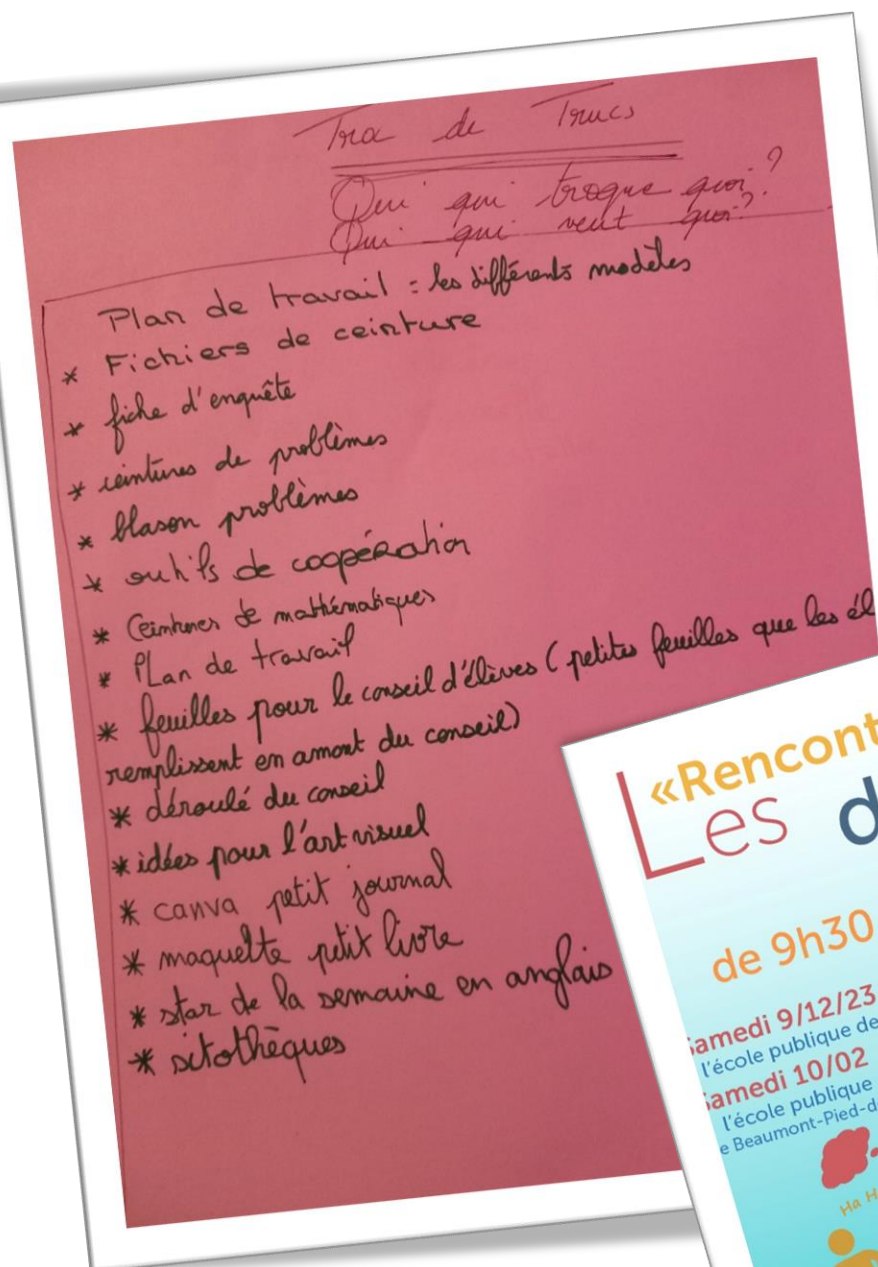 Troc de Trucs
Qui qui troque quoi ?
Qui qui veut quoi ?
Plan de travail : les différents modèles
* Fichiers de ceinture
* fiche d'enquête
* ceintures de problèmes
* blason problèmes
* outils de coopération
* Ceintures de mathématiques
* PLan de travail
* feuilles pour le conseil d'élèves ( petites feuilles que les él
remplissent en amont du conseil)
* déroulé du conseil
* idées pour l'art visuel
* canva petit journal
* maquette petit livre
* star de la semaine en anglais
* sitothèques
«Rencont
Les d
de 9h30
samedi 9/12/23
l'école publique de
samedi 10/02
l'école publique
e Beaumont-Pied-d
Ha H